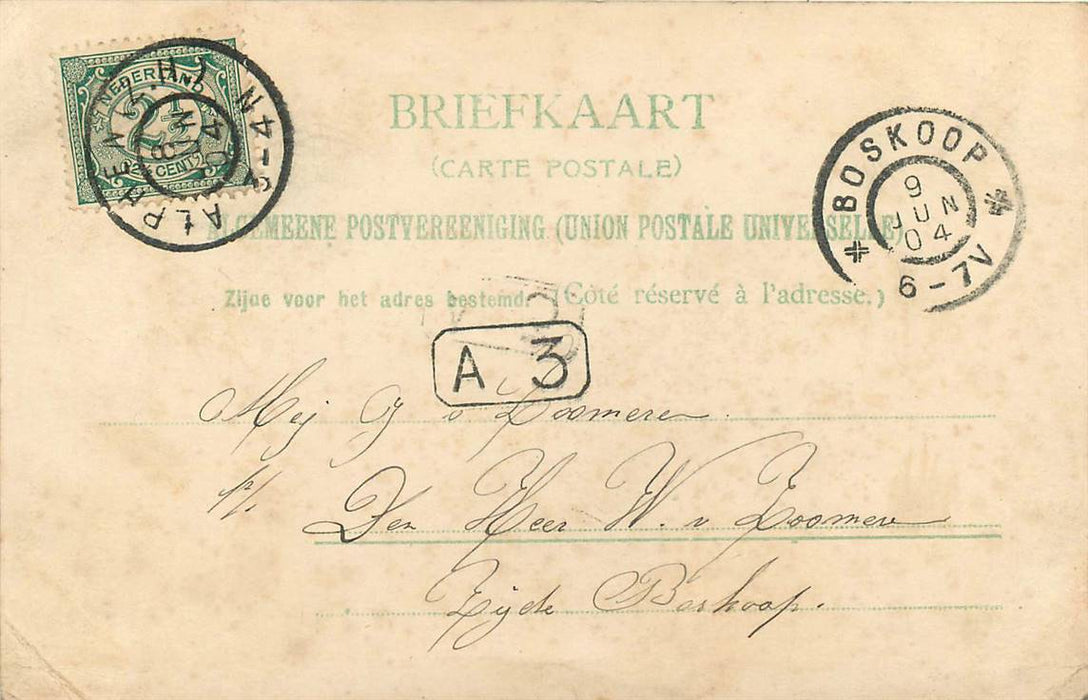 NEDERLAND
2½
2½ CENT 2½
ALPHEN (Z.H.) 4-5 N
8 JUN 04
BRIEFKAART
(CARTE POSTALE)
ALGEMEENE POSTVEREENIGING (UNION POSTALE UNIVERSELLE)
Zijde voor het adres bestemd. (Côté réservé à l'adresse.)
BOSKOOP
9
JUN
04
6-7V
A 3
Mej J v Zoomeren
p/.
Den Heer W. v Zoomeren
Zijde Boskoop.